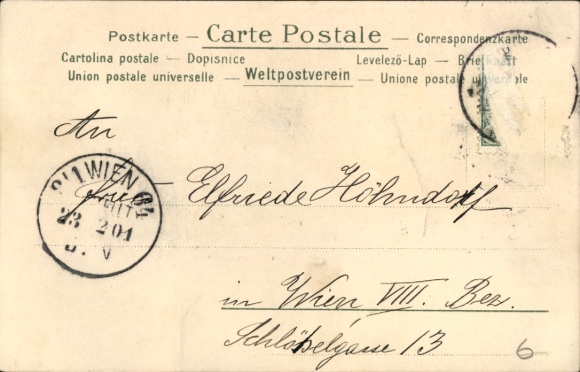 Postkarte — Carte Postale — Correspondenzkarte
Cartolina postale — Dopisnice Levelező-Lap — Briefkaart
Union postale universelle — Weltpostverein — Unione postale universale
An
Elfriede Höhndorf
WIEN 64
23 2 01
V
in Wien VIII. Bez.
Schlößelgasse 13
6